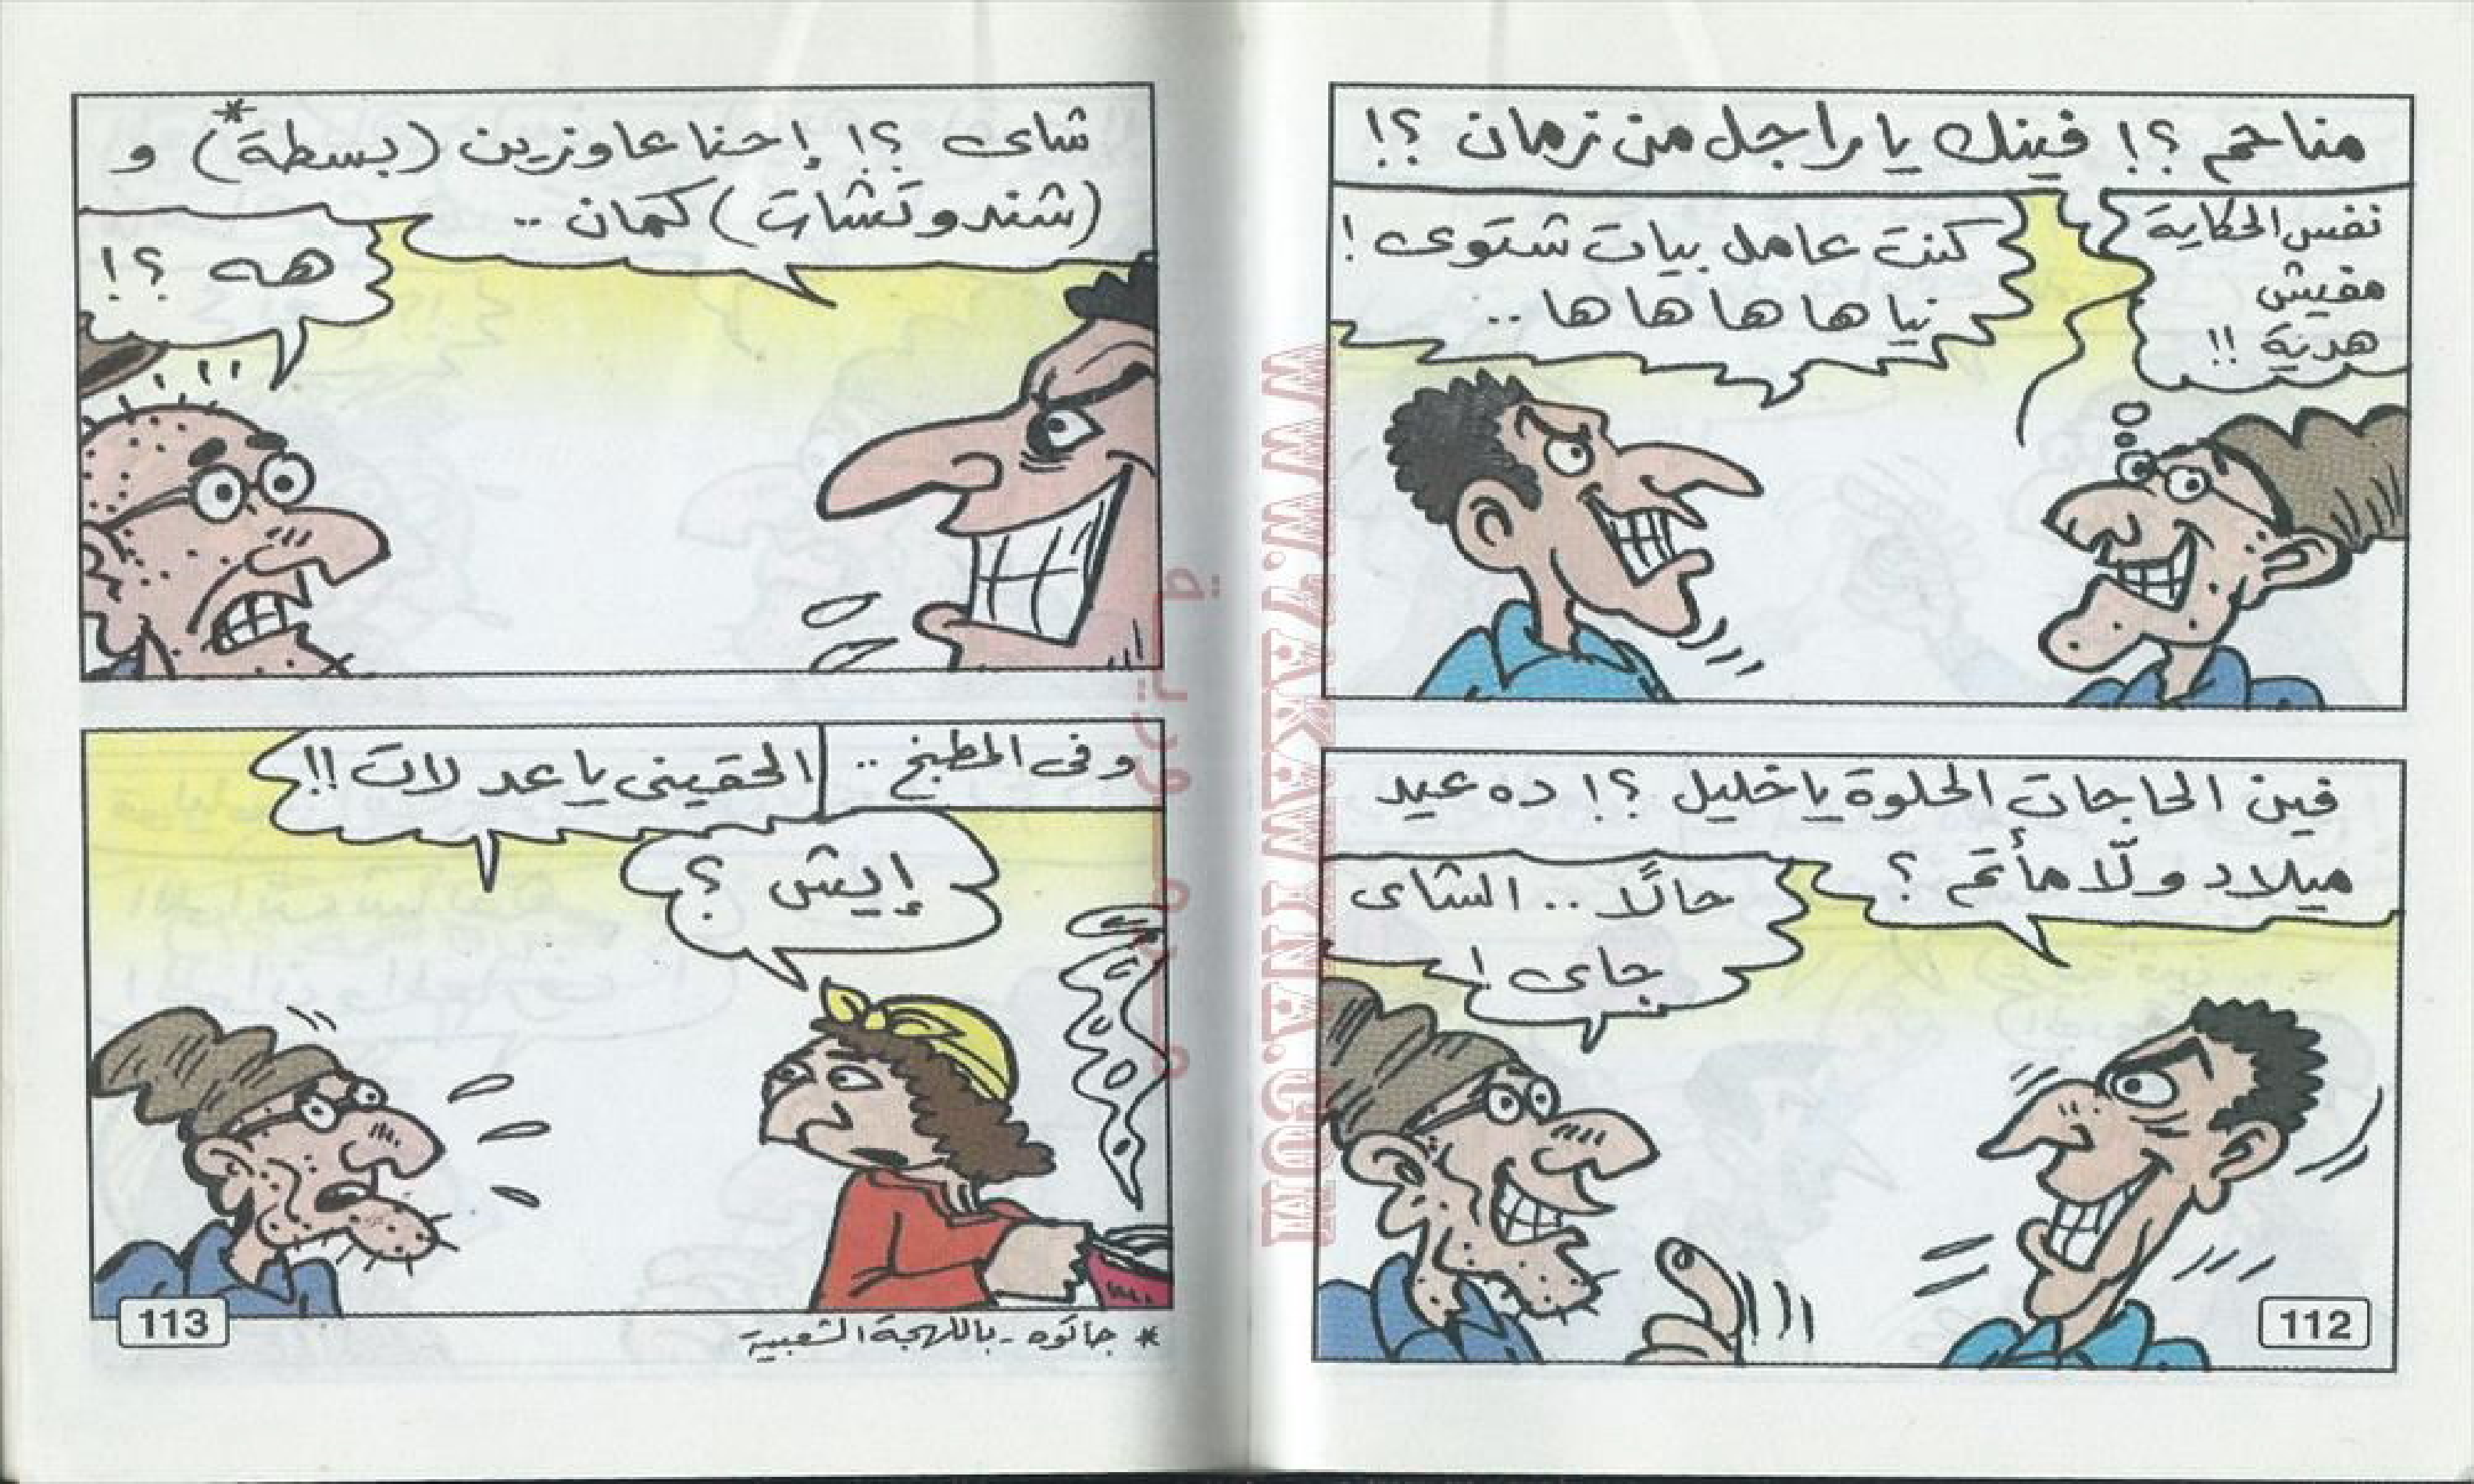 مناحم ؟! فينك يا راجل من زمان ؟!
نفس الحكاية
مفيش
هدنة !!
كنت عامل بيات شتوى !
نيا ها ها ها ها ..
فين الحاجات الحلوة يا خليل ؟! ده عيد
ميلاد ولّا مأتم ؟
حالًا .. الشاى
جاى !
112
شاى ؟! إحنا عاوزين (بسطة*) و
(شندوتشات) كمان ..
هه ؟!
وفى المطبخ ..
الحقينى يا عدلات !!
إيش ؟
* جاتوه - باللهجة الشعبية
113